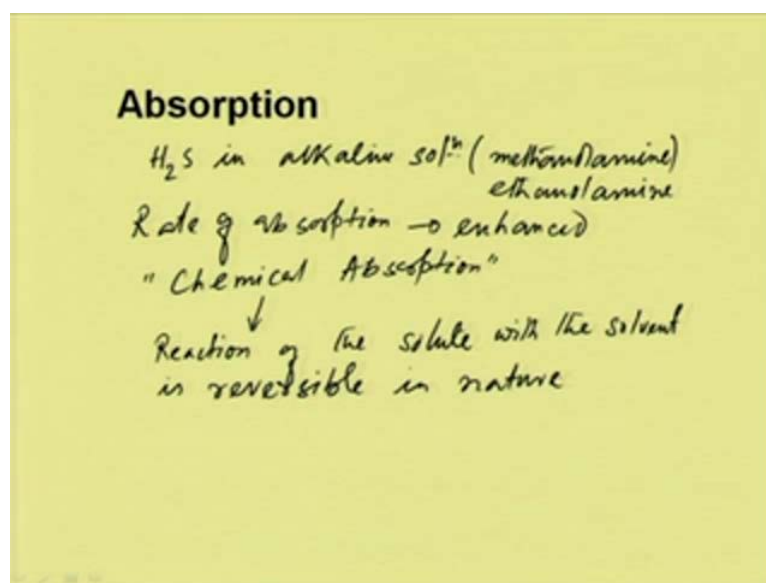 Absorption
H₂S in alkaline solⁿ (methanolamine)
ethanolamine
Rate of absorption → enhanced
"Chemical Absorption"
↓
Reaction of the solute with the solvent
is reversible in nature